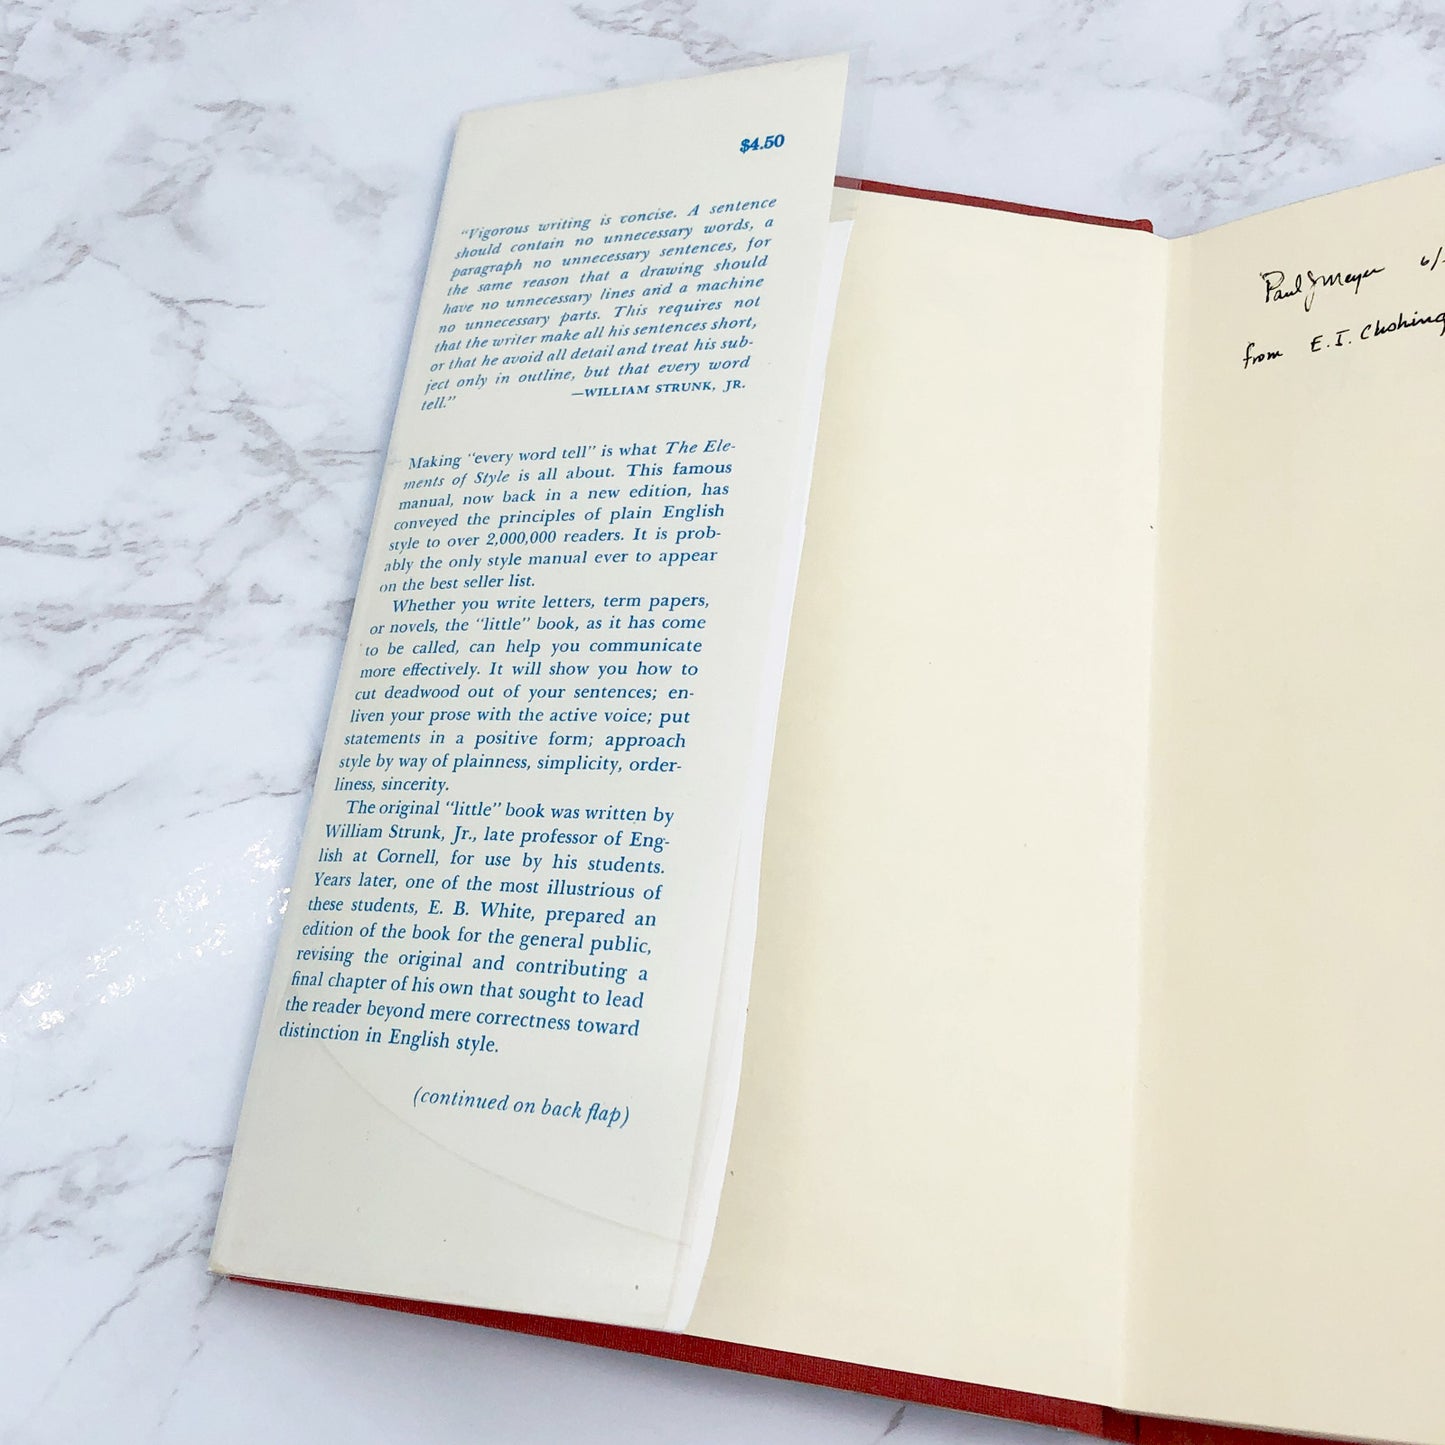 $4.50
"Vigorous writing is concise. A sentence
should contain no unnecessary words, a
paragraph no unnecessary sentences, for
the same reason that a drawing should
have no unnecessary lines and a machine
no unnecessary parts. This requires not
that the writer make all his sentences short,
or that he avoid all detail and treat his sub-
ject only in outline, but that every word
tell."
—WILLIAM STRUNK, JR.
Making "every word tell" is what The Ele-
ments of Style is all about. This famous
manual, now back in a new edition, has
conveyed the principles of plain English
style to over 2,000,000 readers. It is prob-
ably the only style manual ever to appear
on the best seller list.
Whether you write letters, term papers,
or novels, the "little" book, as it has come
to be called, can help you communicate
more effectively. It will show you how to
cut deadwood out of your sentences; en-
liven your prose with the active voice; put
statements in a positive form; approach
style by way of plainness, simplicity, order-
liness, sincerity.
The original "little" book was written by
William Strunk, Jr., late professor of Eng-
lish at Cornell, for use by his students.
Years later, one of the most illustrious of
these students, E. B. White, prepared an
edition of the book for the general public,
revising the original and contributing a
final chapter of his own that sought to lead
the reader beyond mere correctness toward
distinction in English style.
(continued on back flap)
Paul J Meyer 6/
from E. I.